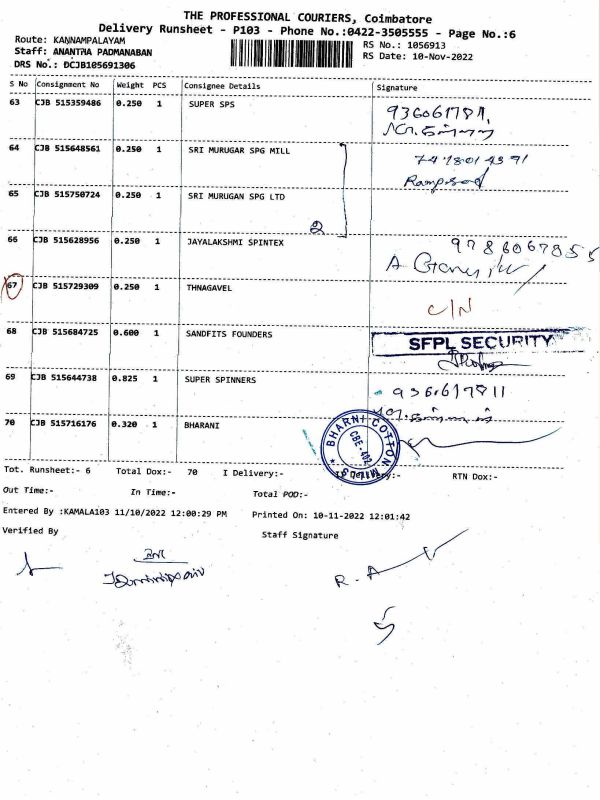 THE PROFESSIONAL COURIERS, Coimbatore
Delivery Runsheet - P103 - Phone No.:0422-3505555 - Page No.:6
Route: KANNAMPALAYAM
RS No.: 1056913
Staff: ANANTHA PADMANABAN
RS Date: 10-Nov-2022
DRS No.: DCJB105691306
S No Consignment No Weight PCS Consignee Details Signature
63 CJB 515359486 0.250 1 SUPER SPS
64 CJB 515648561 0.250 1 SRI MURUGAR SPG MILL
Ramprasad
65 CJB 515750724 0.250 1 SRI MURUGAN SPG LTD
2
66 CJB 515628956 0.250 1 JAYALAKSHMI SPINTEX
67 CJB 515729309 0.250 1 THNAGAVEL C/N
68 CJB 515684725 0.600 1 SANDFITS FOUNDERS SFPL SECURITY
69 CJB 515644738 0.825 1 SUPER SPINNERS
70 CJB 515716176 0.320 1 BHARANI
BHARNI COTTON MILLS
CBE-402
Tot. Runsheet:- 6 Total Dox:- 70 I Delivery:- RTN Dox:-
Out Time:- In Time:- Total POD:-
Entered By :KAMALA103 11/10/2022 12:00:29 PM Printed On: 10-11-2022 12:01:42
Verified By Staff Signature
R. A